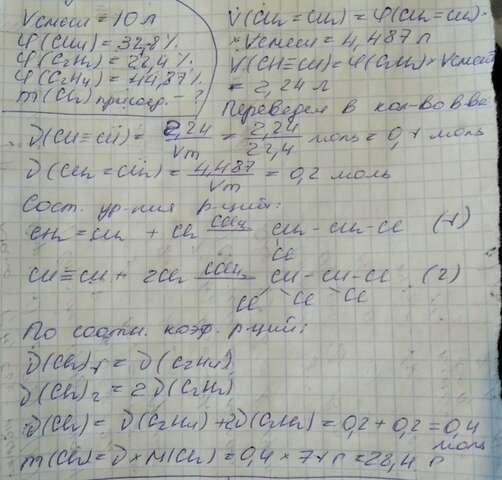 Vсмеси = 10 л
φ(CH4) = 32,8 %
φ(C2H2) = 22,4 %
φ(C2H4) = 44,87 %
m(Cl2) присоед. - ?
V(CH2=CH2) = φ(CH2=CH2) ·
× Vсмеси = 4,487 л
V(CH≡CH) = φ(C2H2) × Vсмеси
= 2,24 л
Переведем в кол-во в-ва
ν(CH≡CH) = 2,24/Vm = 2,24/22,4 моль = 0,1 моль
ν(CH2=CH2) = 4,487/Vm = 0,2 моль
Сост. ур-ния р-ций:
CH2=CH2 + Cl2 CCl4 CH2 - CH2 - Cl (1)
Cl
CH≡CH + 2Cl2 CCl4 CH - CH - Cl (2)
Cl Cl Cl
По соотн. коэф. р-ций:
ν(Cl2)1 = ν(C2H4)
ν(Cl2)2 = 2ν(C2H2)
ν(Cl2) = ν(C2H4) + 2ν(C2H2) = 0,2 + 0,2 = 0,4
моль
m(Cl2) = ν × M(Cl2) = 0,4 × 71 г = 28,4 г